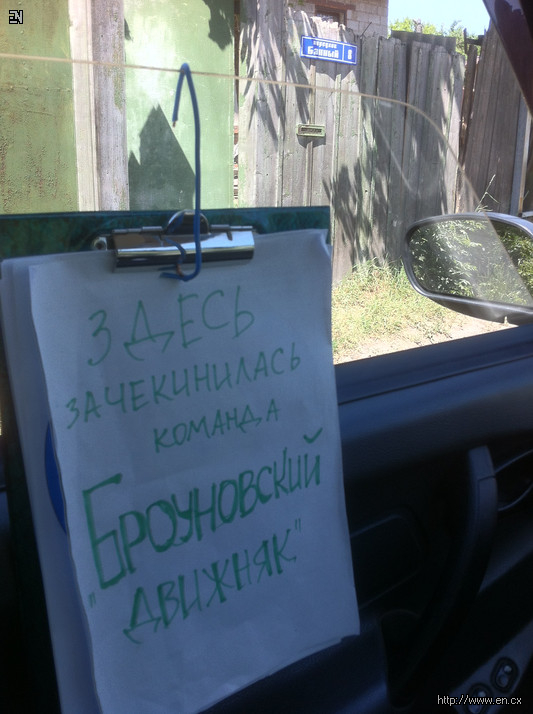 EN
переулок
Банный 8
ЗДЕСЬ
ЗАЧЕКИНИЛАСЬ
КОМАНДА
БРОУНОВСКИЙ
"ДВИЖНЯК"
http://www.en.cx